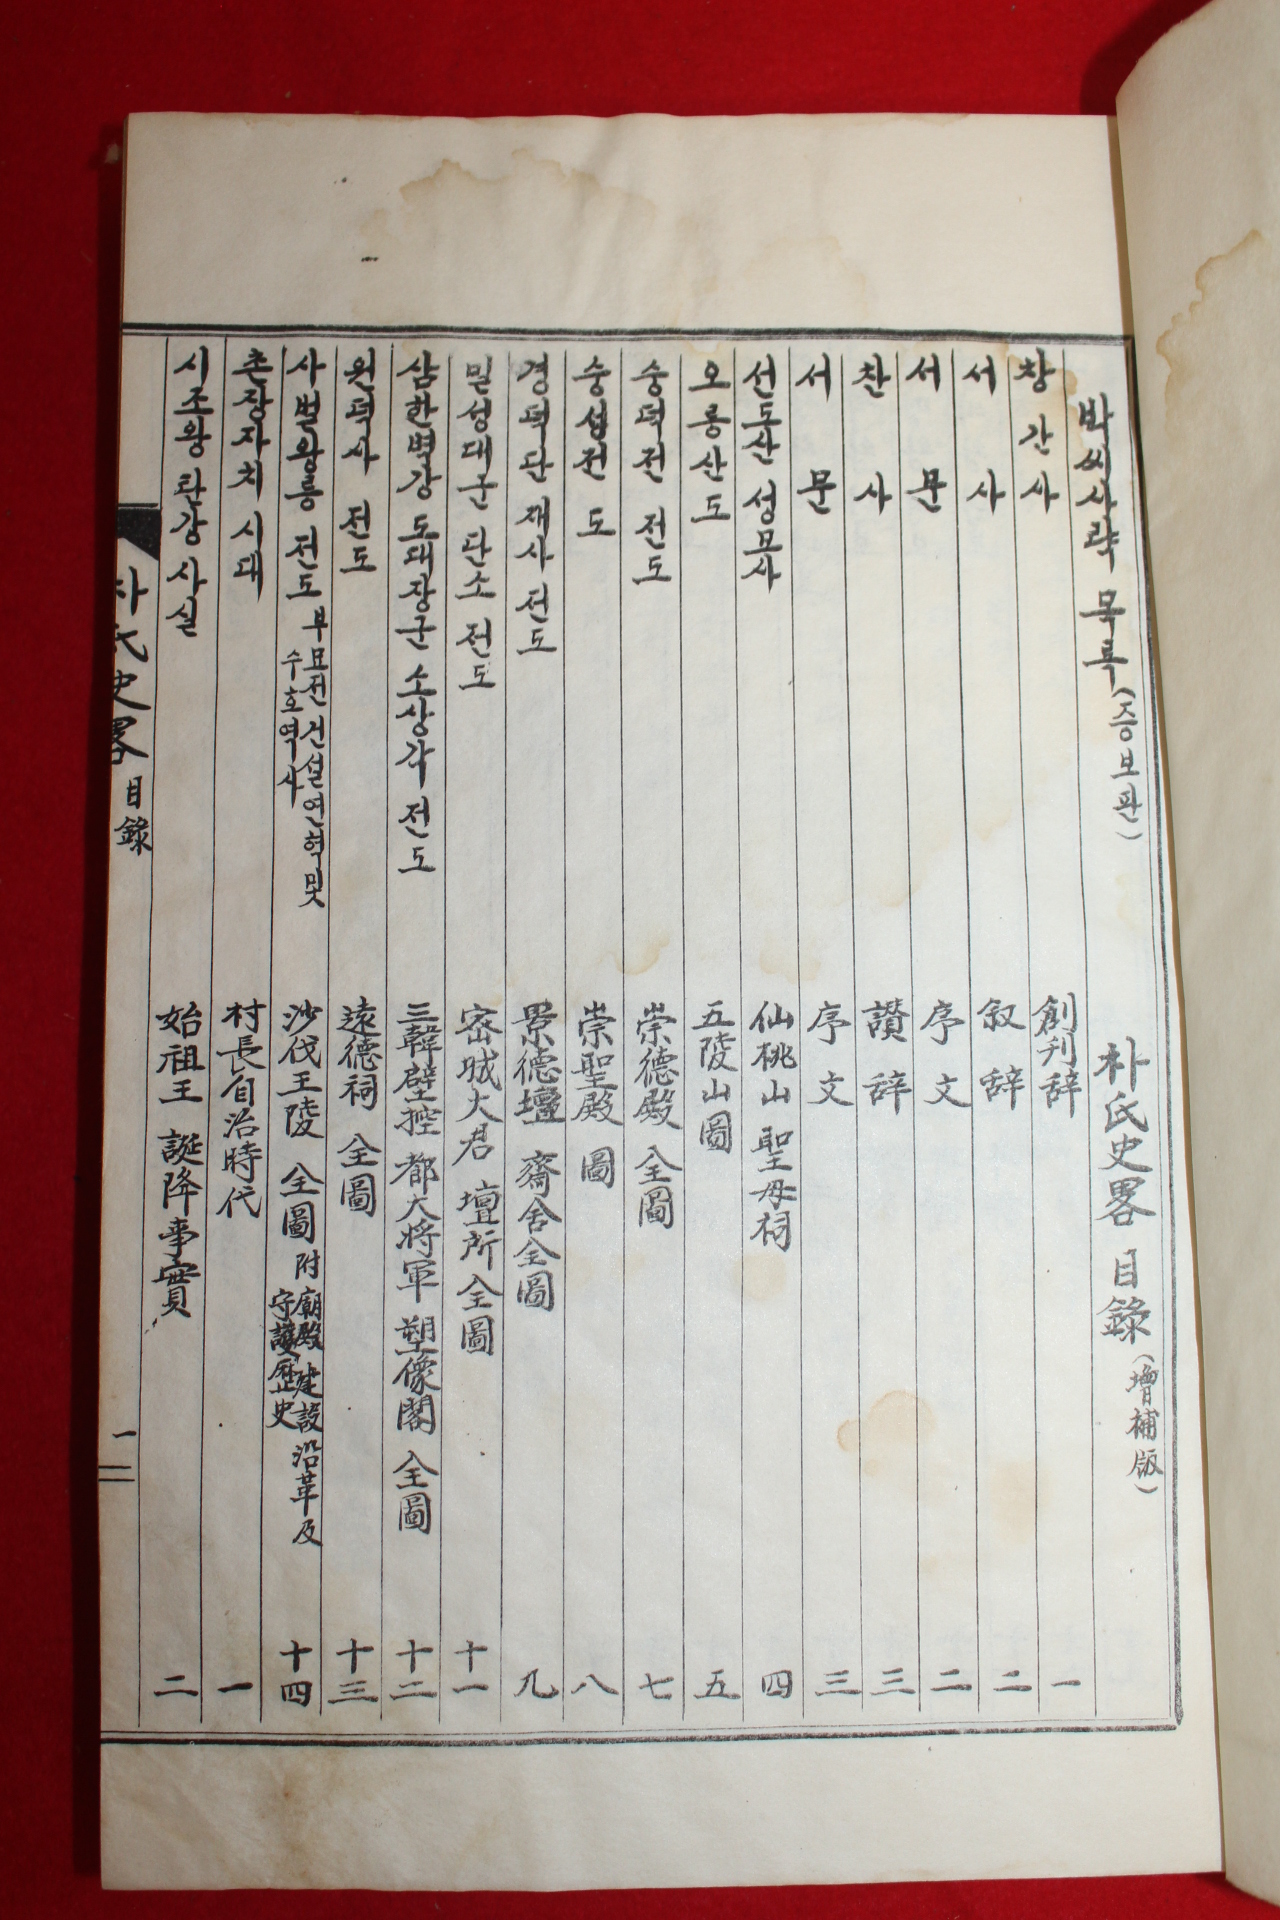 박씨사략 목록 (증보판) 朴氏史畧 目錄 (增補版)
창간사 創刊辞 一
서사 叙辞 二
서문 序文 二
찬사 讃辞 三
서문 序文 三
선도산 성모사 仙桃山 聖母祠 四
오릉산도 五陵山圖 五
숭덕전 전도 崇德殿 全圖 七
숭성전 도 崇聖殿 圖 八
경덕단 재사 전도 景德壇 齋舍全圖 九
밀성대군 단소 전도 密城大君 壇所 全圖 十一
삼한벽강 도대장군 소상각 전도 三韓壁控 都大将軍 塑像閣 全圖 十二
원덕사 전도 遠德祠 全圖 十三
사벌왕릉 전도 부묘전건설연혁및 수호역사 沙伐王陵 全圖 附廟殿建設沿革及 守護歷史 十四
촌장자치 시대 村長自治時代 一
시조왕 탄강 사실 始祖王 誕降事實 二
朴氏史畧 目錄 一